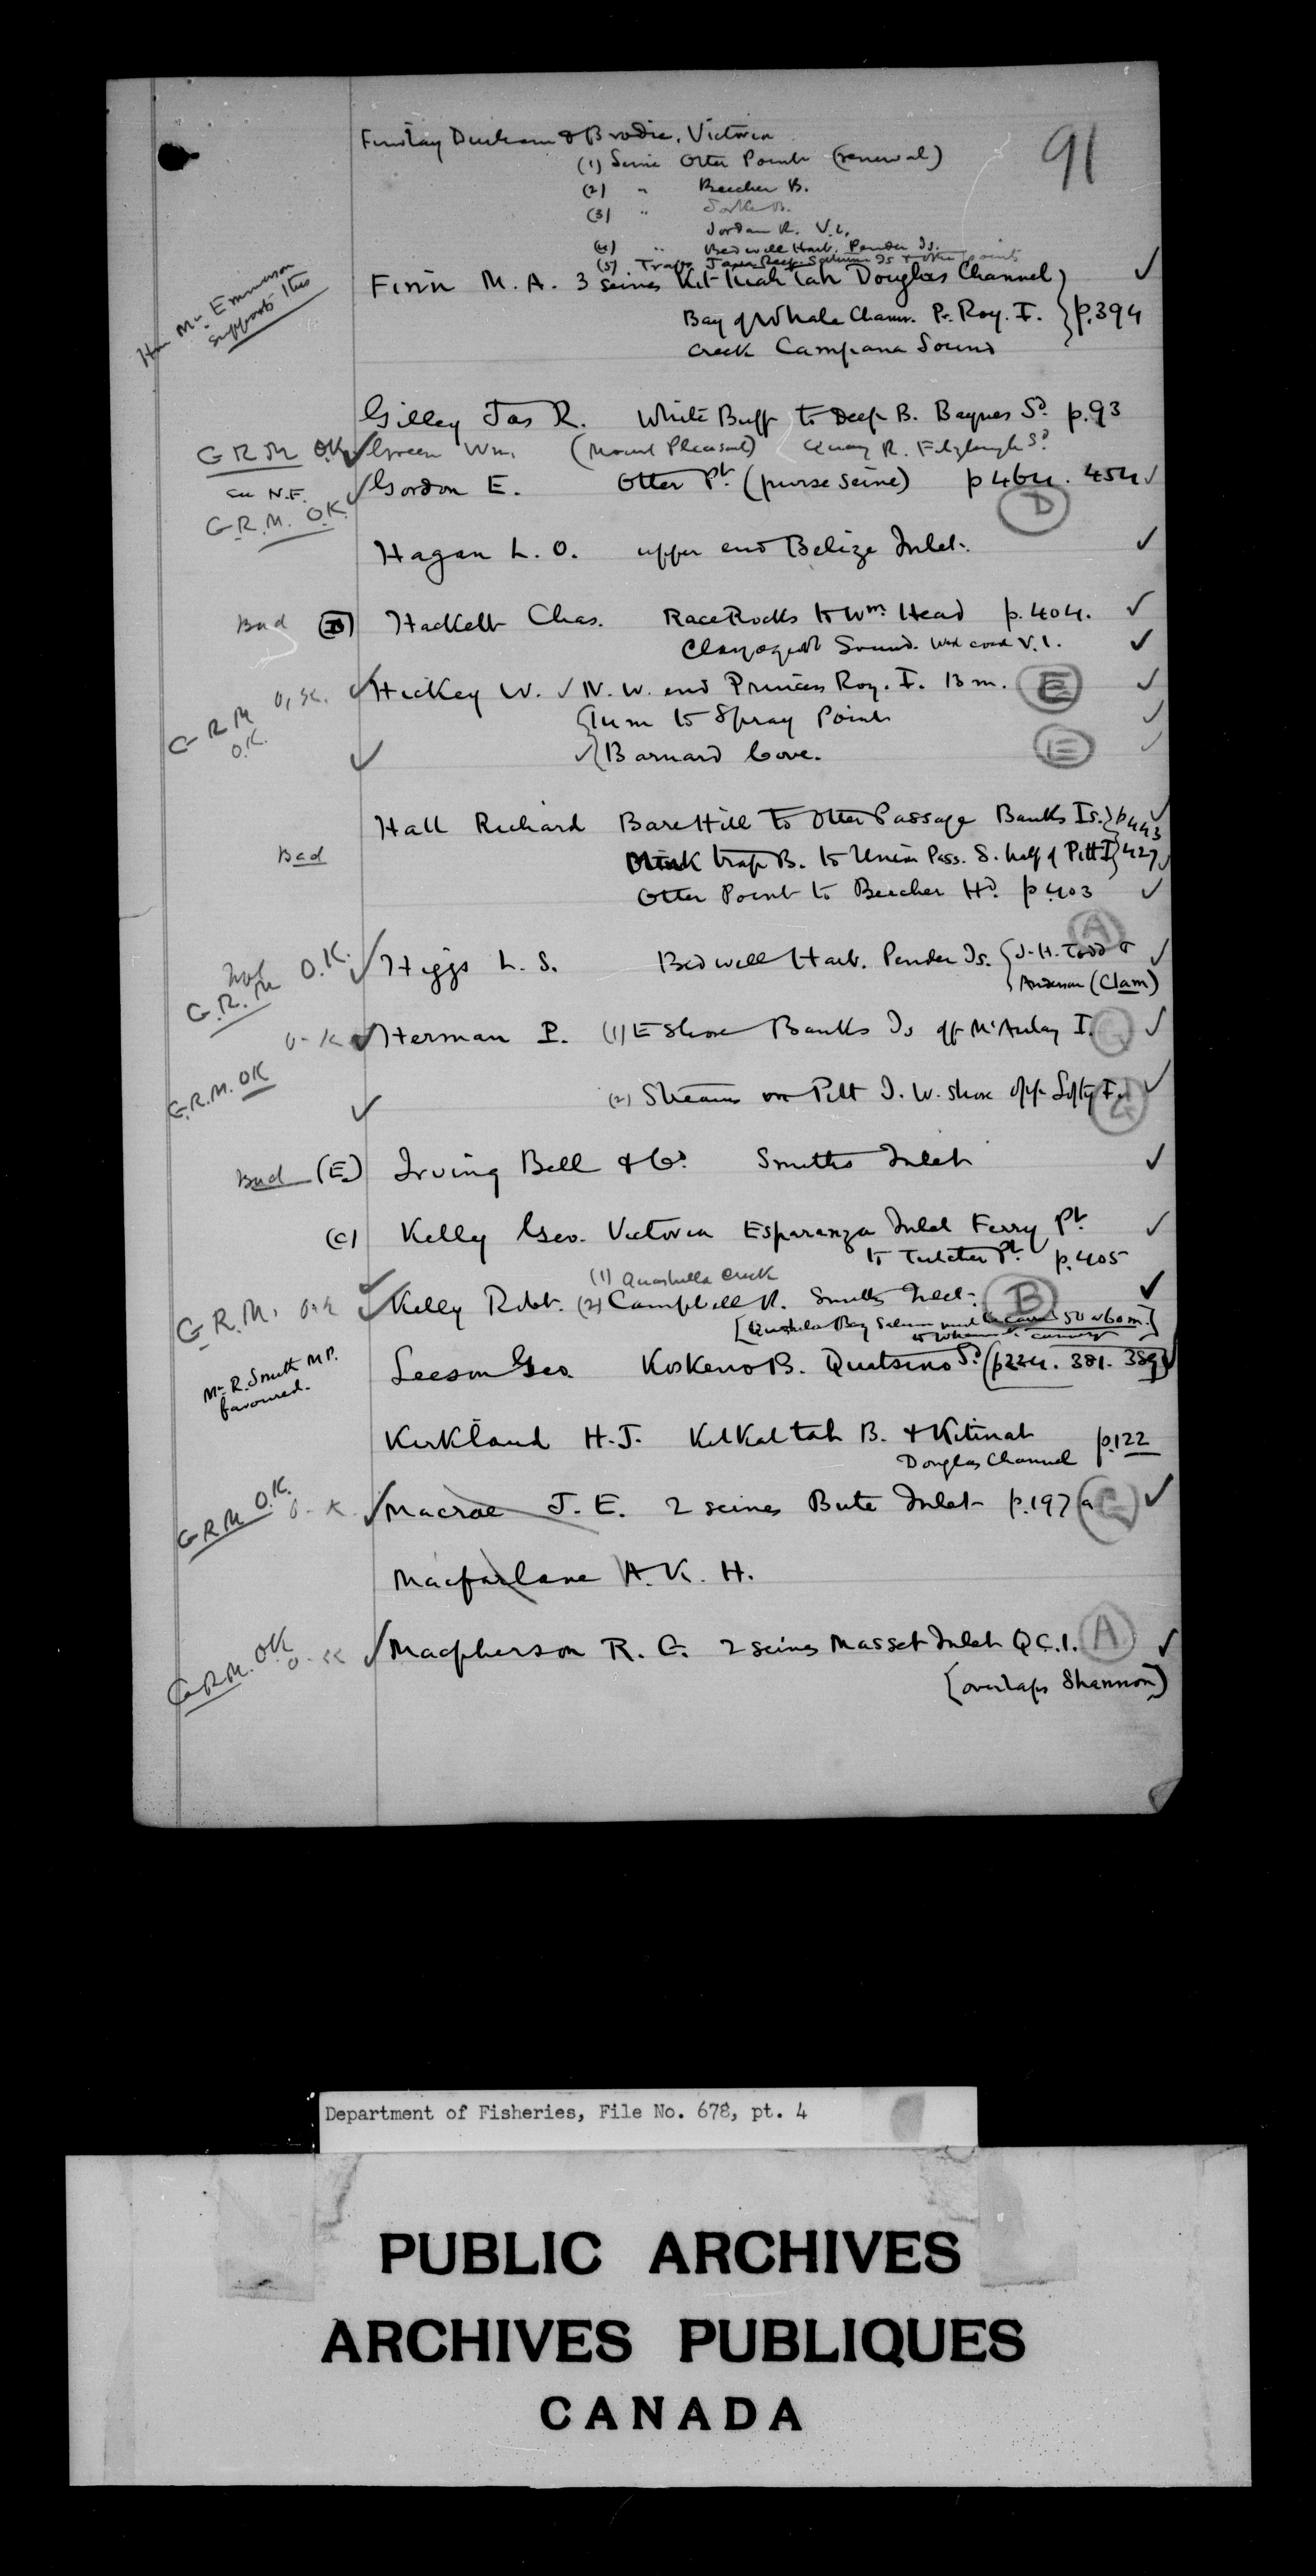 91
Findlay Durham & Brodie, Victoria
(1) Seine Otter Point (renewal)
(2) " Beecher B.
(3) "
Jordan R. V.I.
(4) " Bedwell Harb. Pender Is.
(5) Traps Reef Is & other points
Hon Mr Emmerson
supports this
Finn M. A. 3 seines Kit Kiah tah Douglas Channel ✓
Bay of Whale Chann. Pr. Roy. I. p. 394
Creek Campana Sound
Gilley Jas R. White Buff to Deep B. Baynes Sd. p. 93
G R M O.K. ✓ Green Wm. (Mount Pleasant) R. Fitzhugh Sd.
N.F. ✓ Gordon E. Otter Pt. (purse seine) p 464. 454 ✓
G.R.M. O.K. D
Hagan L. O. upper end Belize Inlet. ✓
Bad (B) Hackett Chas. Race Rocks to Wm. Head p. 404. ✓
Clayoquot Sound. West coast V.I. ✓
✓ Hickey W. ✓ N. W. end Princess Roy. I. 13 m. E ✓
G R M to Spray Point ✓
O.K. ✓ ✓ Barnard Cove. E ✓
Hall Richard Bare Hill to Otter Passage Banks Is. p 443 ✓
Bad trap B. to Union Pass. S. half of Pitt I 427 ✓
Otter Point to Beecher Hd. p. 403 ✓
A
O.K. ✓ Higgs L. S. Bedwell Harb. Pender Is. J. H. Todd & ✓
G.R.M Anderson (Clam)
O-K ✓ Herman P. (1) E Shore Banks Is off McAulay I. ✓
G.R.M. OK
✓ (2) Streams on Pitt I. W. shore opp. Lofty I. ✓
Bad (E) Irving Bell & Co. Smiths Inlet ✓
(C) Kelly Geo. Victoria Esperanza Inlet Ferry Pt. ✓
to Tatchu Pt. p. 405
(1) Quashella Creek
G.R.M. O.K ✓ Kelly Robt. (2) Campbell R. Smiths Inlet. B ✓
[Quashela Bay Salmon must be carried 50 or 60 m.]
to Wharnock cannery
Mr R. Smith M.P.
favoured.
Leeson Geo. Koskeno B. Quatsino Sd. (p 224. 381. 389) ✓
Kirkland H. J. Kilkaltah B. & Kitimat p. 122
Douglas Channel
G R M O.K. O-K. ✓ Macrae J. E. 2 seines Bute Inlet p. 197 a ✓
Macfarlane A. K. H.
G.R.M. OK O-K ✓ Macpherson R. G. 2 seines Masset Inlet Q C. I. A ✓
[overlaps Shannon]
Department of Fisheries, File No. 678, pt. 4
PUBLIC ARCHIVES
ARCHIVES PUBLIQUES
CANADA